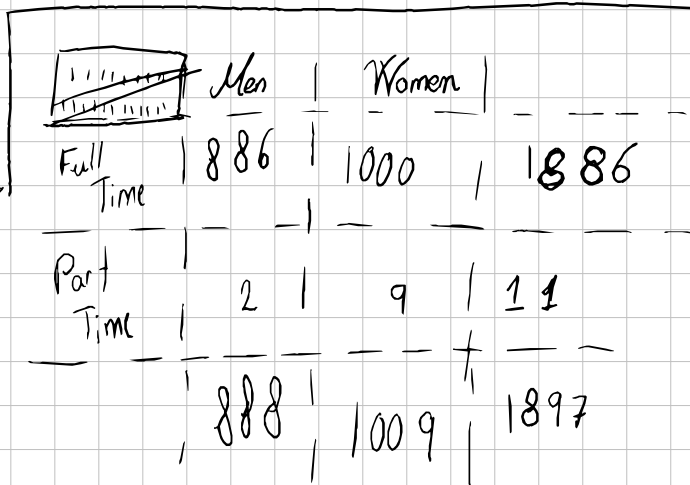 Men Women
Full Time 886 1000 1886
Part Time 2 9 11
888 1009 1897